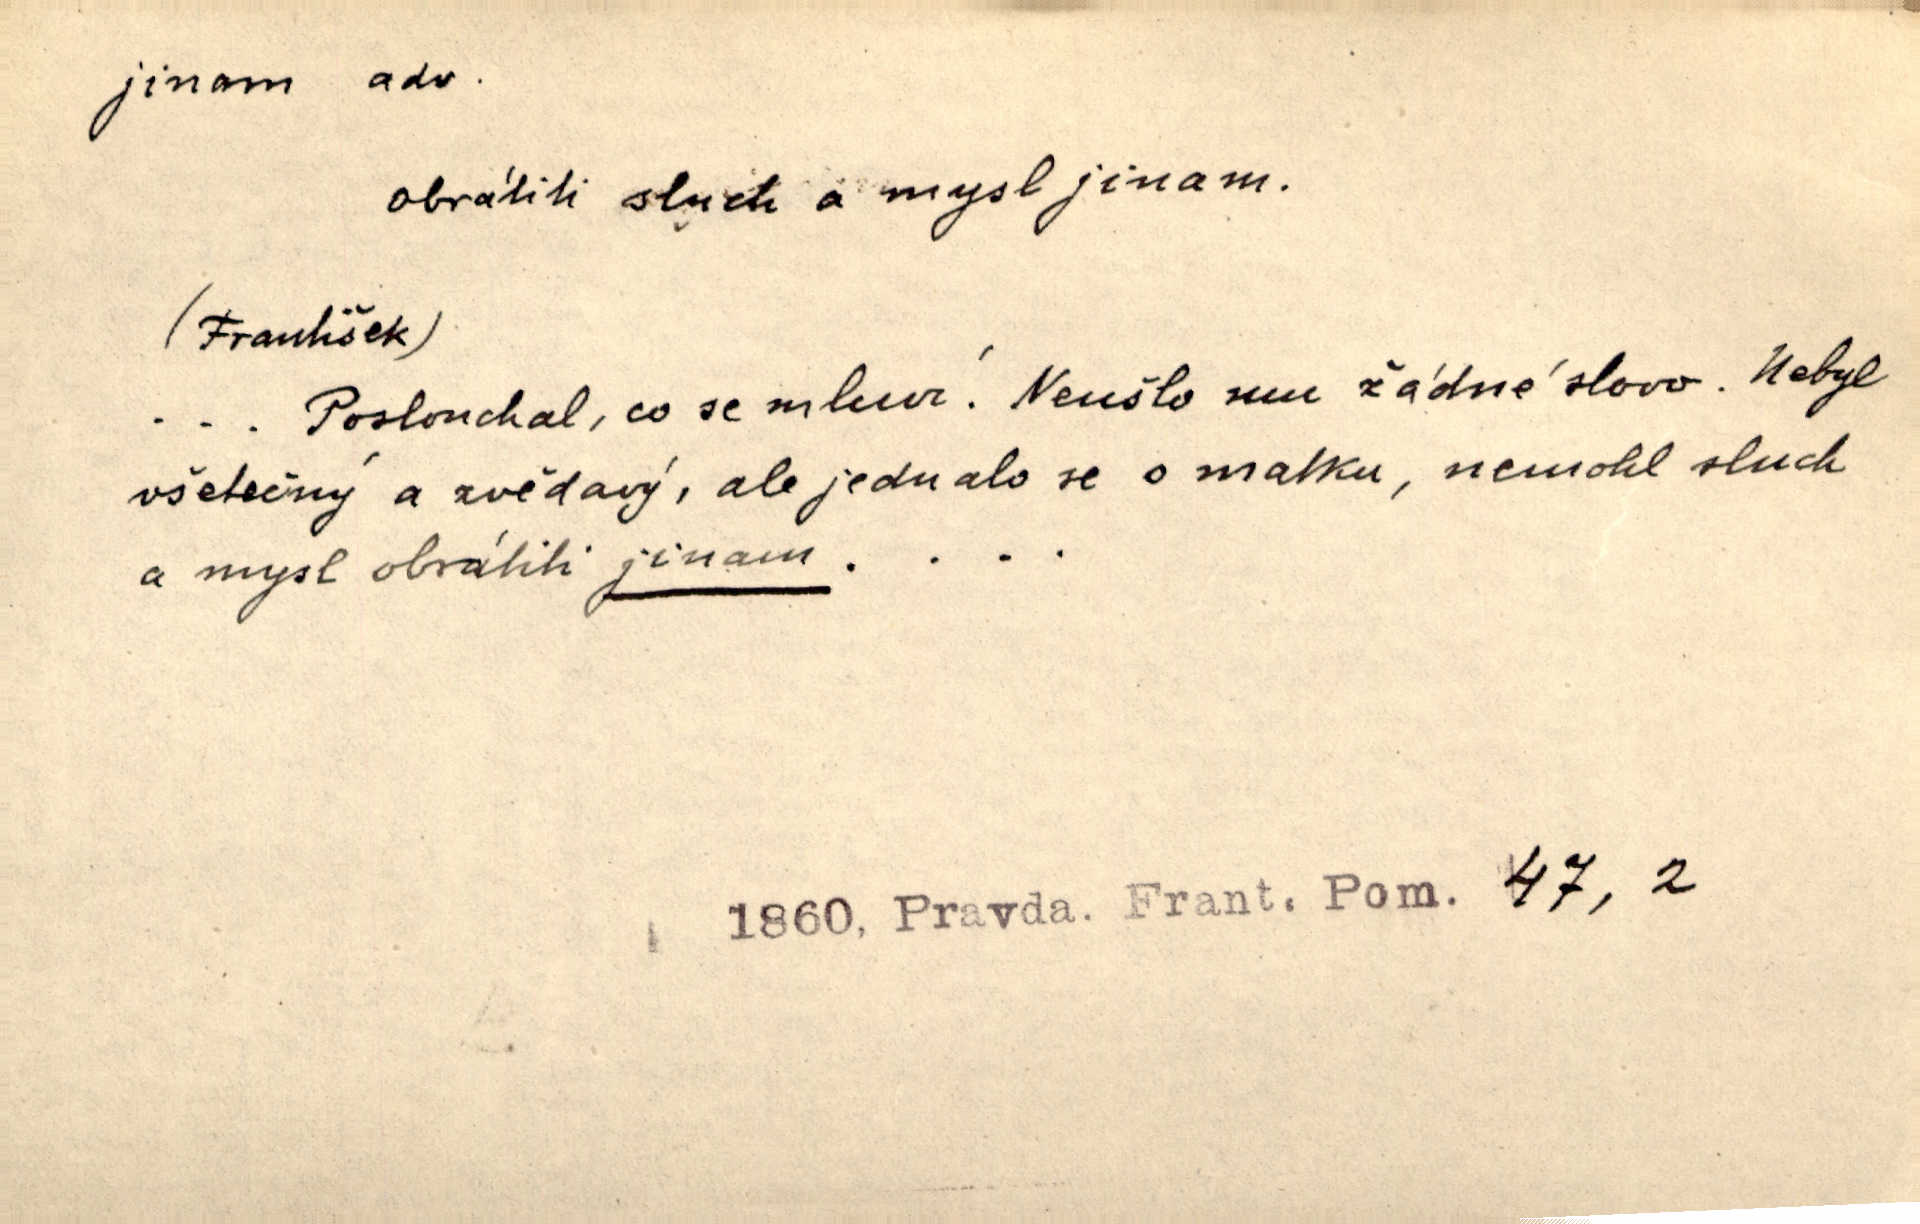 jinam adv.
obrátiti sluch a mysl jinam.
(František)
... Poslouchal, co se mluví. Neušlo mu žádné slovo. Nebyl
všetečný a zvědavý, ale jednalo se o matku, nemohl sluch
a mysl obrátiti jinam. ...
1860, Pravda. Frant. Pom. 47, 2